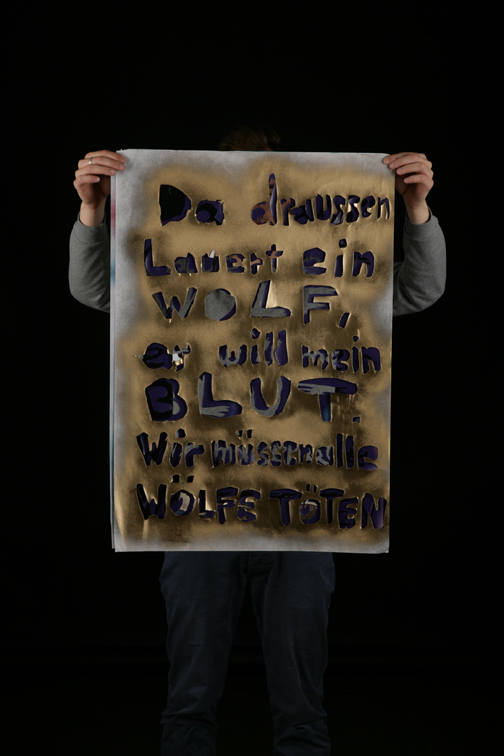 Da draussen
Lauert ein
WOLF,
er will mein
BLUT.
Wir müssen alle
WÖLFE TÖTEN